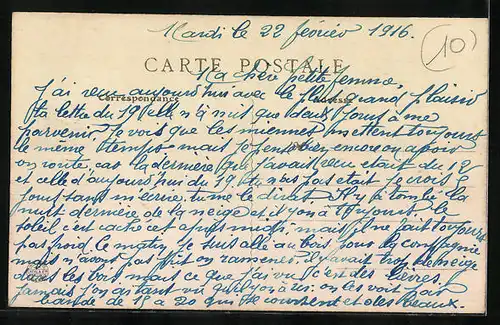 Mardi le 22 février 1916.
(10)
CARTE POSTALE
Ma chère petite femme,
J'ai reçu aujourd'hui avec le plus grand plaisir
Correspondance Adresse
ta lettre du 19 elle n'a mit que deux jours à me
parvenir. Je vois que les miennes mettent toujours
le même temps mais je dois bien encore en avoir
en route, car la dernière que j'avais reçu était du 12
et celle d'aujourd'hui du 19. tu n'as pas était crois
jours sans m'ecrire, tu me le dirat. Il y à tombé la
nuit dernière de la neige et il y on à toujours. le
soleil c'est caché cet après midi, mais il ne fait toujours
pas froid. le matin je suis allé au bois pour la compagnie
mais n'avons pas put en ramener il y avait trop de neige
dans les bois mais ce que j'ai vu c'est des lièvres.
jamais j'en ai tant vu qu'il y on à ici. on les voit par
bande de 15 a 20 qui se courrent et des beaux.